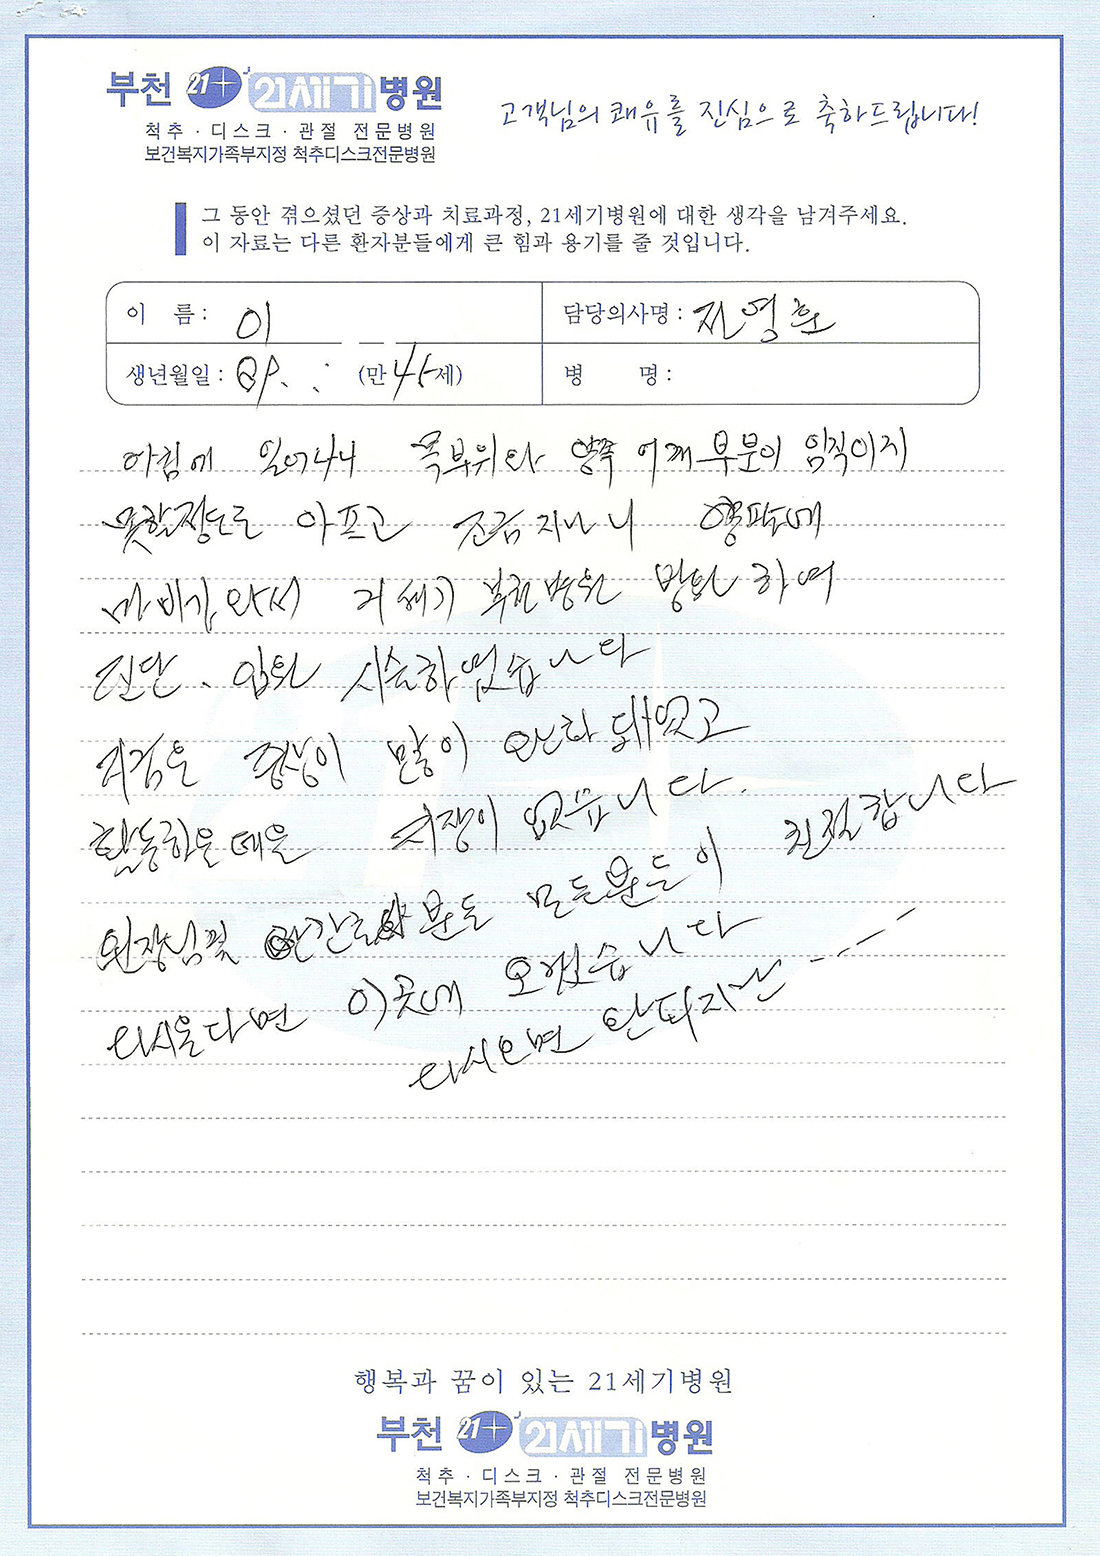 부천 21 21세기병원
척추 · 디스크 · 관절 전문병원
보건복지가족부지정 척추디스크전문병원
고객님의 쾌유를 진심으로 축하드립니다!
그 동안 겪으셨던 증상과 치료과정, 21세기병원에 대한 생각을 남겨주세요.
이 자료는 다른 환자분들에게 큰 힘과 용기를 줄 것입니다.
이 름 : 이
담당의사명 : 전영훈
생년월일 : (만 45세)
병 명 :
아침에 일어나니 목부위와 양쪽 어깨부분이 움직이지
못할정도로 아프고 조금지나니 양팔에
마비가와서 21세기 부천병원 방문하여
진단、 입원 시술하였습니다
지금은 증상이 많이 완화돼었고
활동하는데는 지장이 없습니다.
원장님및 간호사분들 모든분들이 친절합니다
다시온다면 이곳에 오겠습니다
다시오면 안되지만 ----
행복과 꿈이 있는 21세기병원
부천 21 21세기병원
척추 · 디스크 · 관절 전문병원
보건복지가족부지정 척추디스크전문병원